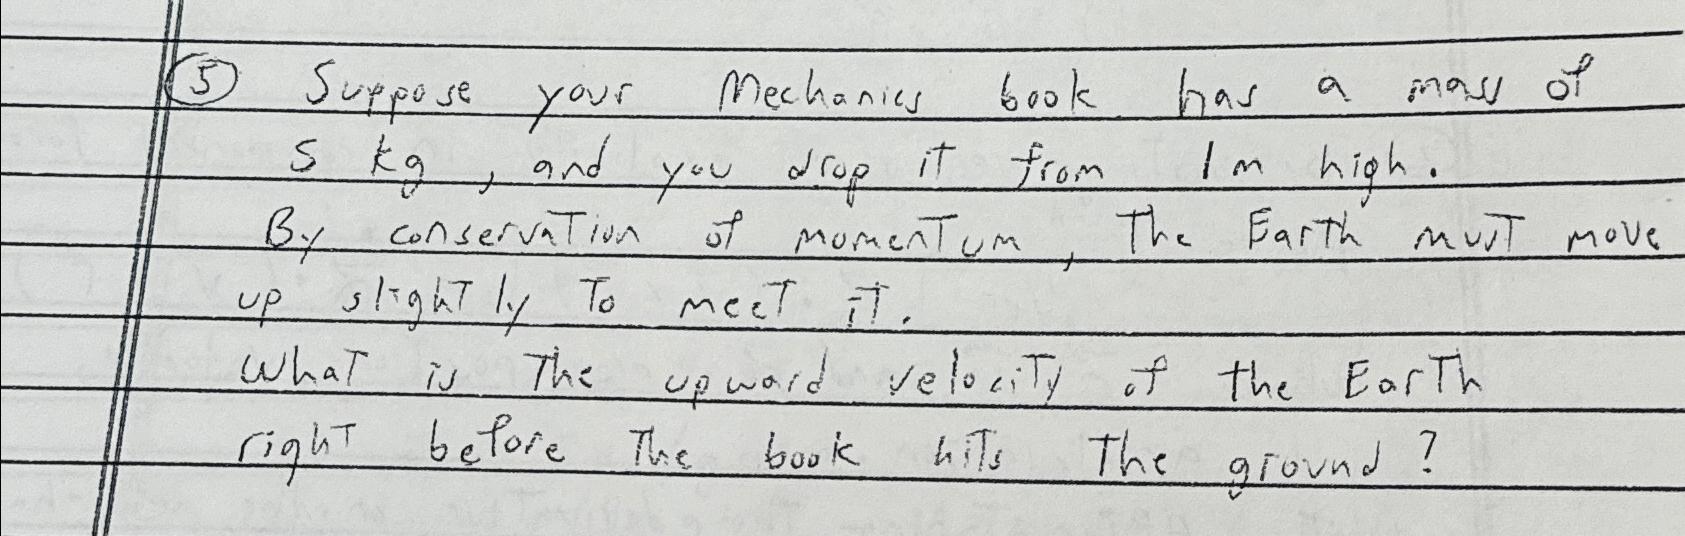 5 Suppose your Mechanics book has a mass of
5 kg, and you drop it from 1 m high.
By conservation of momentum, the Earth must move
up slightly to meet it.
What is the upward velocity of the Earth
right before the book hits the ground?